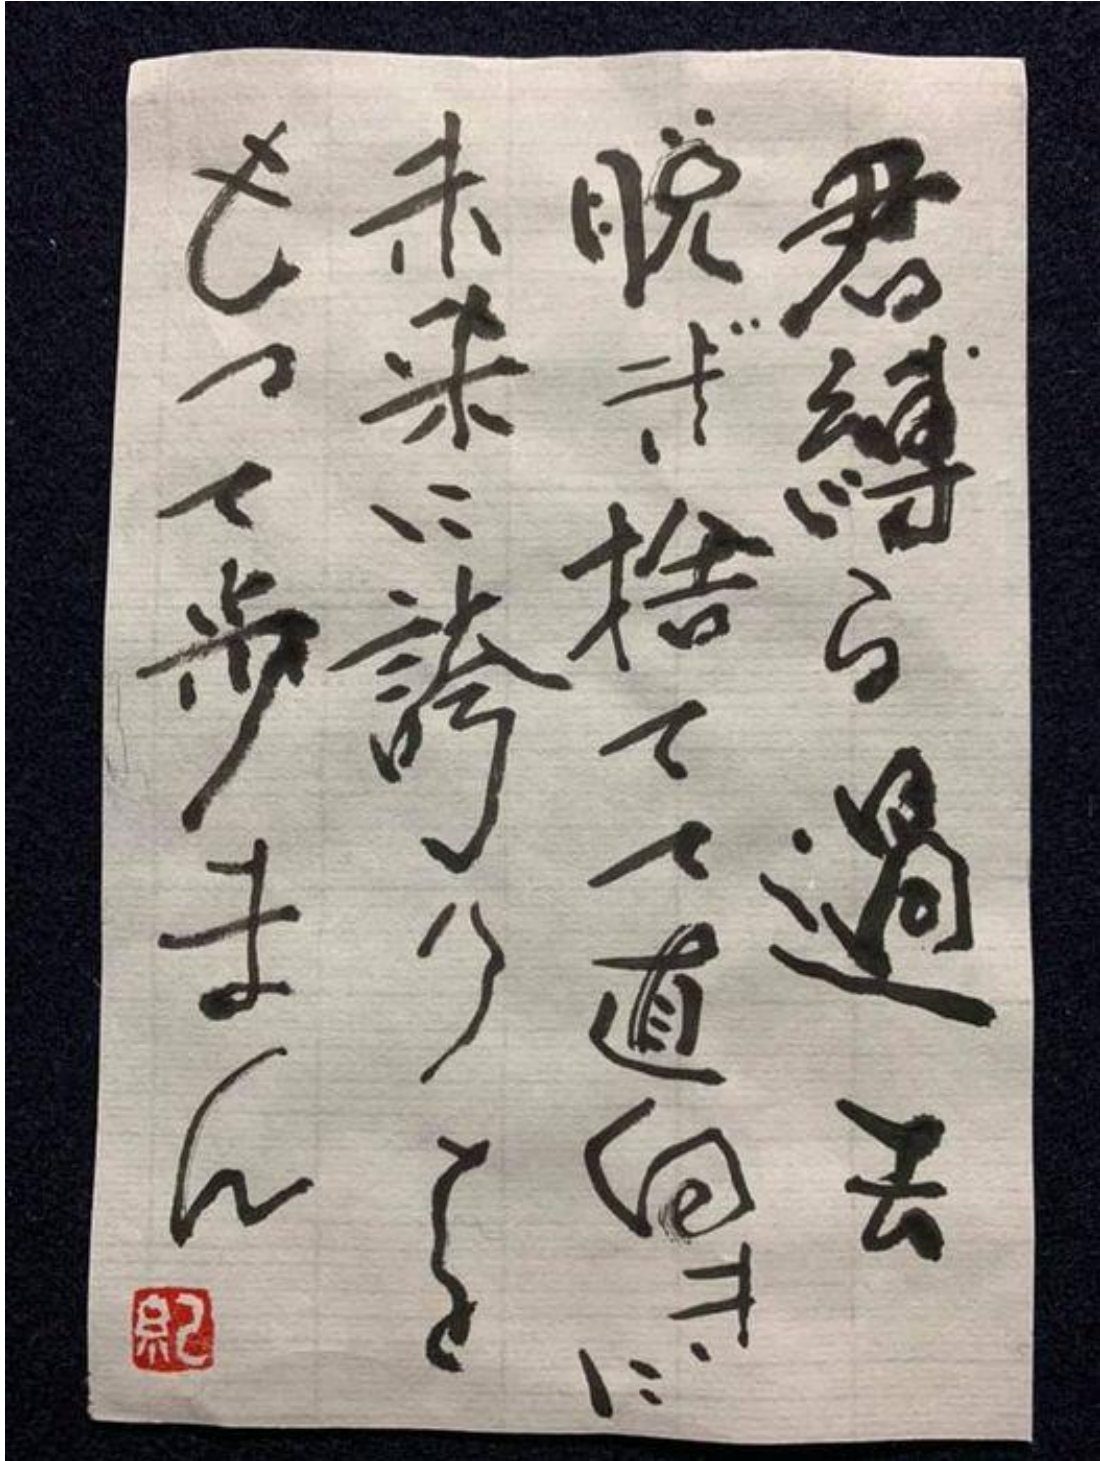 君縛ら過去
脱ぎ捨てて直向きに
未来に誇りを
もって歩まん
紀